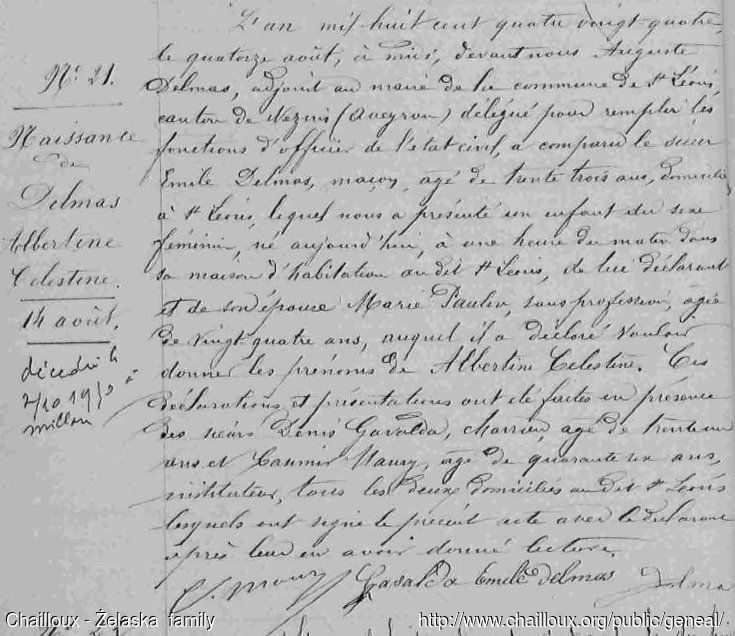 N° 21.
Naissance
de
Delmas
Albertine
Celestine.
14 août.
décédée le
2/10 1970 à
millau
L'an mil huit cent quatre vingt quatre,
le quatorze août, à midi, devant nous Auguste
Delmas, adjoint au maire de la commune de St Léons,
canton de Vezins (Aveyron) délégué pour remplir les
fonctions d'officier de l'etat civil, a comparu le sieur
Emile Delmas, maçon, agé de trente trois ans, domicilié
à St Léons, lequel nous a présenté un enfant du sexe
féminin, né aujourd'hui, à une heure du matin dans
sa maison d'habitation au dit St Léons, de lui déclarant
et de son epouse Marie Paulin, sans profession, agée
de vingt quatre ans, auquel il a déclaré vouloir
donner les prénoms de Albertine Celestine. Ces
déclarations et présentations ont été faites en présence
des sieurs Denis Gavalda, charron, agé de trente un
ans et Casimir Maury, agé de quarante six ans,
instituteur, tous les deux domiciliés au dit St Léons
lesquels ont signé le présent acte avec le déclarant
après leur en avoir donné lecture.
C. Maury Gavalda Emile Delmas Delmas
Chailloux - Żelaska family http://www.chailloux.org/public/geneal/